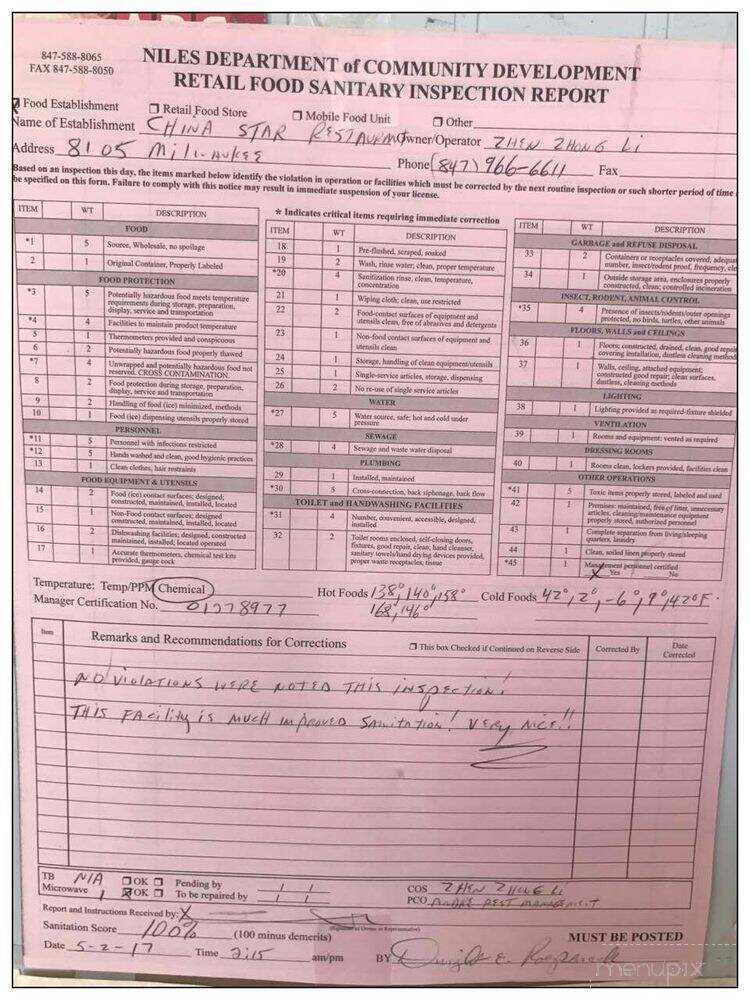 847-588-8065
FAX 847-588-8050
NILES DEPARTMENT of COMMUNITY DEVELOPMENT
RETAIL FOOD SANITARY INSPECTION REPORT
Food Establishment Retail Food Store Mobile Food Unit Other
Name of Establishment CHINA STAR RESTAURANT Owner/Operator ZHEN ZHONG Li
Address 8105 MILWAUKEE Phone (847) 966-6611 Fax
Based on an inspection this day, the items marked below identify the violation in operation or facilities which must be corrected by the next routine inspection or such shorter period of time
be specified on this form. Failure to comply with this notice may result in immediate suspension of your license.
* Indicates critical items requiring immediate correction
ITEM WT DESCRIPTION
FOOD
*1 5 Source, Wholesale, no spoilage
2 1 Original Container, Properly Labeled
FOOD PROTECTION
*3 5 Potentially hazardous food meets temperature
requirements during storage, preparation,
display, service and transportation
*4 4 Facilities to maintain product temperature
5 1 Thermometers provided and conspicuous
6 2 Potentially hazardous food properly thawed
*7 4 Unwrapped and potentially hazardous food not
reserved. CROSS CONTAMINATION.
8 2 Food protection during storage, preparation,
display, service and transportation
9 2 Handling of food (ice) minimized, methods
10 1 Food (ice) dispensing utensils properly stored
PERSONNEL
*11 5 Personnel with infections restricted
*12 5 Hands washed and clean, good hygienic practices
13 1 Clean clothes, hair restraints
FOOD EQUIPMENT & UTENSILS
14 2 Food (ice) contact surfaces; designed;
constructed, maintained, installed, located
15 1 Non-Food contact surfaces; designed
constructed, maintained, installed, located
16 2 Dishwashing facilities; designed, constructed
maintained, installed; located operated
17 1 Accurate thermometers, chemical test kits
provided, gauge cock
ITEM WT DESCRIPTION
18 1 Pre-flushed, scraped, soaked
19 2 Wash, rinse water; clean, proper temperature
*20 4 Sanitization rinse, clean, temperature,
concentration
21 1 Wiping cloth; clean, use restricted
22 2 Food-contact surfaces of equipment and
utensils clean, free of abrasives and detergents
23 1 Non-food contact surfaces of equipment and
utensils clean
24 1 Storage, handling of clean equipment/utensils
25 1 Single-service articles, storage, dispensing
26 2 No re-use of single service articles
WATER
*27 5 Water source, safe; hot and cold under
pressure
SEWAGE
*28 4 Sewage and waste water disposal
PLUMBING
29 1 Installed, maintained
*30 5 Cross-connection, back siphonage, back flow
TOILET and HANDWASHING FACILITIES
*31 4 Number, convenient, accessible, designed,
installed
32 2 Toilet rooms enclosed, self-closing doors,
fixtures, good repair, clean; hand cleanser,
sanitary towels/hand drying devices provided,
proper waste receptacles, tissue
ITEM WT DESCRIPTION
GARBAGE and REFUSE DISPOSAL
33 2 Containers or receptacles covered; adequat
number, insect/rodent proof, frequency, cle
34 1 Outside storage area, enclosures properly
constructed, clean; controlled incineration
INSECT, RODENT, ANIMAL CONTROL
*35 4 Presence of insects/rodents/outer openings
protected, no birds, turtles, other animals
FLOORS, WALLS and CEILINGS
36 1 Floors; constructed, drained, clean, good repai
covering installation, dustless cleaning method
37 1 Walls, ceiling, attached equipment;
constructed good repair; clean surfaces,
dustless, cleaning methods
LIGHTING
38 1 Lighting provided as required-fixture shielded
VENTILATION
39 1 Rooms and equipment: vented as required
DRESSING ROOMS
40 1 Rooms clean, lockers provided, facilities clean
OTHER OPERATIONS
*41 5 Toxic items properly stored, labeled and used
42 1 Premises: maintained, free of litter, unnecessary
articles, cleaning/maintenance equipment
properly stored, authorized personnel
43 1 Complete separation from living/sleeping
quarters, laundry
44 1 Clean, soiled linen properly stored
*45 1 Management personnel certified
X Yes No
Temperature: Temp/PPM Chemical Hot Foods 138°, 140°, 158° Cold Foods 42°, 2°, -6°, 9°, 42°F.
Manager Certification No. 01278977 168°, 146°
Item Remarks and Recommendations for Corrections This box Checked if Continued on Reverse Side Corrected By Date
Corrected
NO VIOLATIONS WERE NOTED THIS INSPECTION!
THIS FACILITY IS MUCH IMPROVED SANITATION! VERY NICE!!
TB N/A OK Pending by / /
Microwave 1 OK To be repaired by / /
COS ZHEN ZHONG Li
PCO PEST MANAGEMENT
Report and Instructions Received by: X
(Signature of Owner or Representative)
Sanitation Score 100% (100 minus demerits) MUST BE POSTED
Date 5-2-17 Time 2:15 am/pm BY Dwight E.
menupix